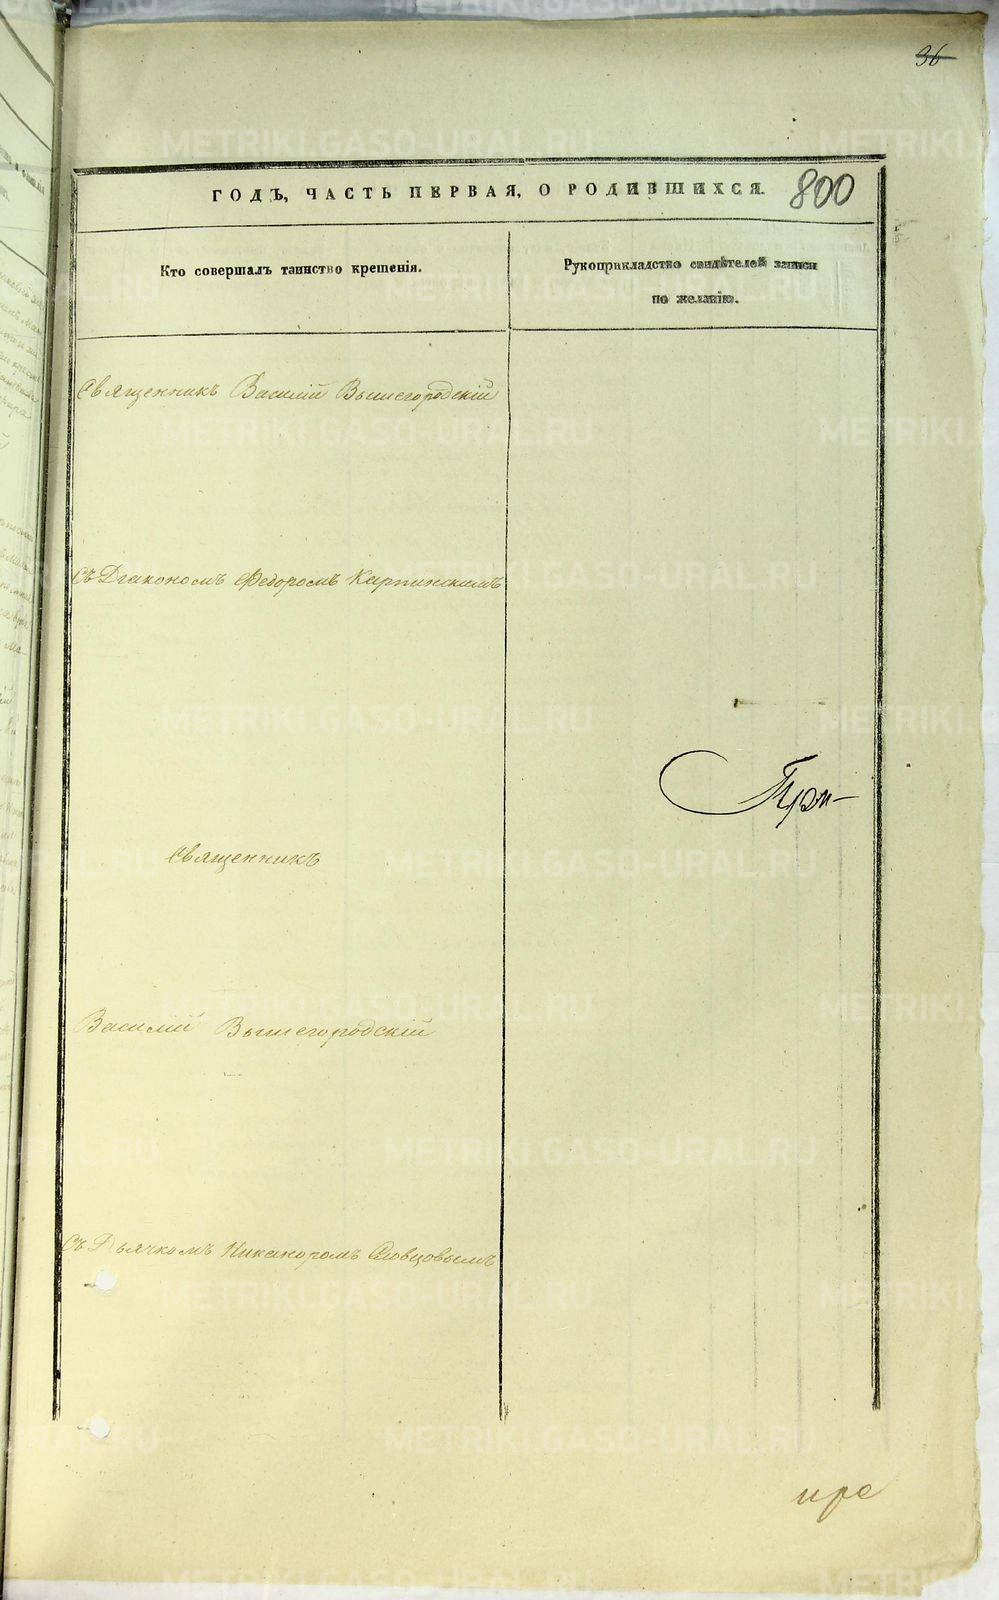 36
ГОДЪ, ЧАСТЬ ПЕРВАЯ, О РОДИВШИХСЯ. 800
Кто совершалъ таинство крещенія.
Рукоприкладство свидѣтелей записи
по желанію.
Священникъ Василій Вышегородскій
Съ Діакономъ Федоромъ Карпинскимъ
При-
Священникъ
Василій Вышегородскій
Съ Дьячкомъ Никаноромъ Словцовымъ
METRIKI.GASO-URAL.RU